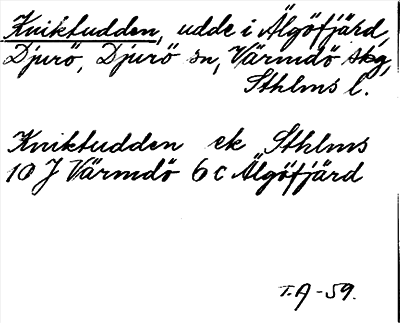 Kniktudden, udde i Älgöfjärd,
Djurö, Djurö sn, Värmdö skg,
Sthlms l.
Kniktudden ek Sthlms
10 J Värmdö 6 c Älgöfjärd
T.A -59.